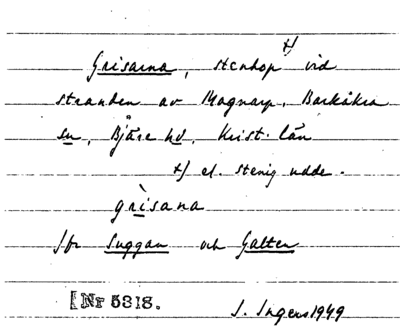 Grisarna, stenhop +) vid
stranden av Magnarp, Barkåkra
sn, Bjäre hd, Krist. län
+) el. stenig udde.
grìsana
Jfr Suggan och Galten
[Nr 5318.
S. Ingers 1949